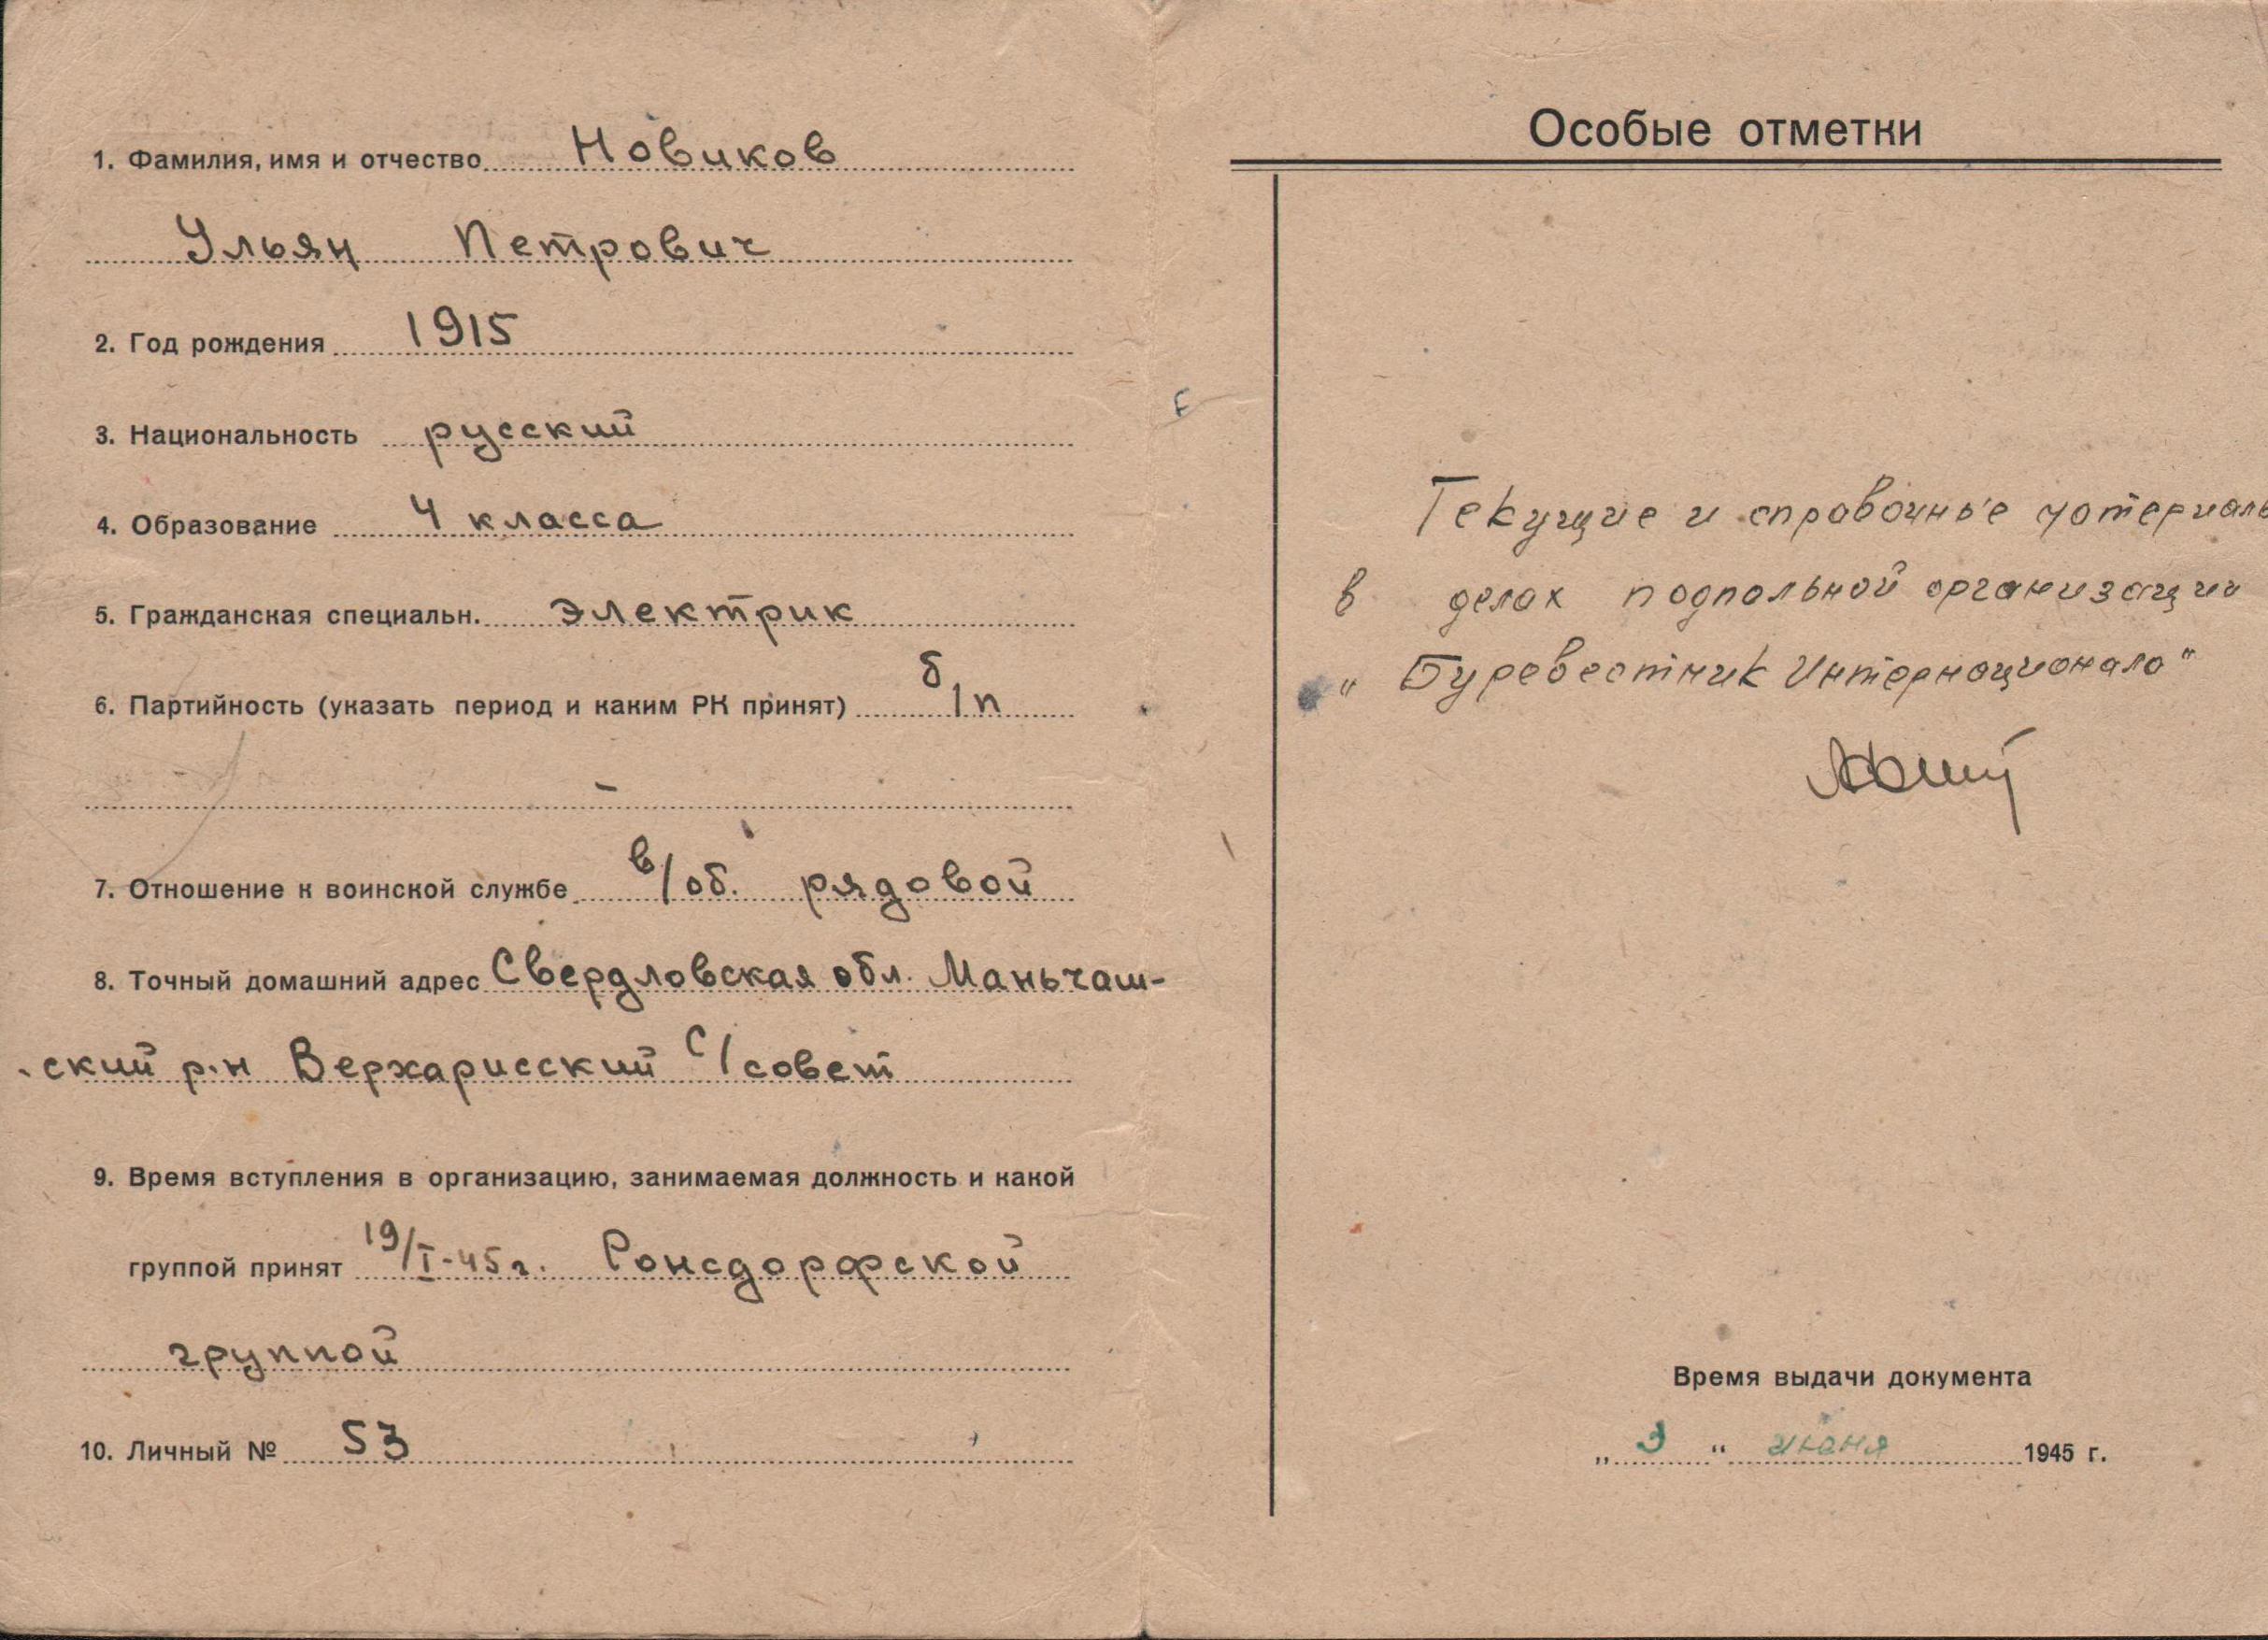 1. Фамилия, имя и отчество Новиков
Ульян Петрович
2. Год рождения 1915
3. Национальность русский
4. Образование 4 класса
5. Гражданская специальн. электрик
6. Партийность (указать период и каким РК принят) б/п
-
7. Отношение к воинской службе в/об. рядовой
8. Точный домашний адрес Свердловская обл. Маньчаш-
ский р-н Верхарисский с/совет
9. Время вступления в организацию, занимаемая должность и какой
группой принят 19/I-45г. Ронсдорфской
группой
10. Личный № 53
Особые отметки
Текущие и справочные материалы
в делах подпольной организации
„Буревестник Интернационала"
Время выдачи документа
„3" июня 1945 г.